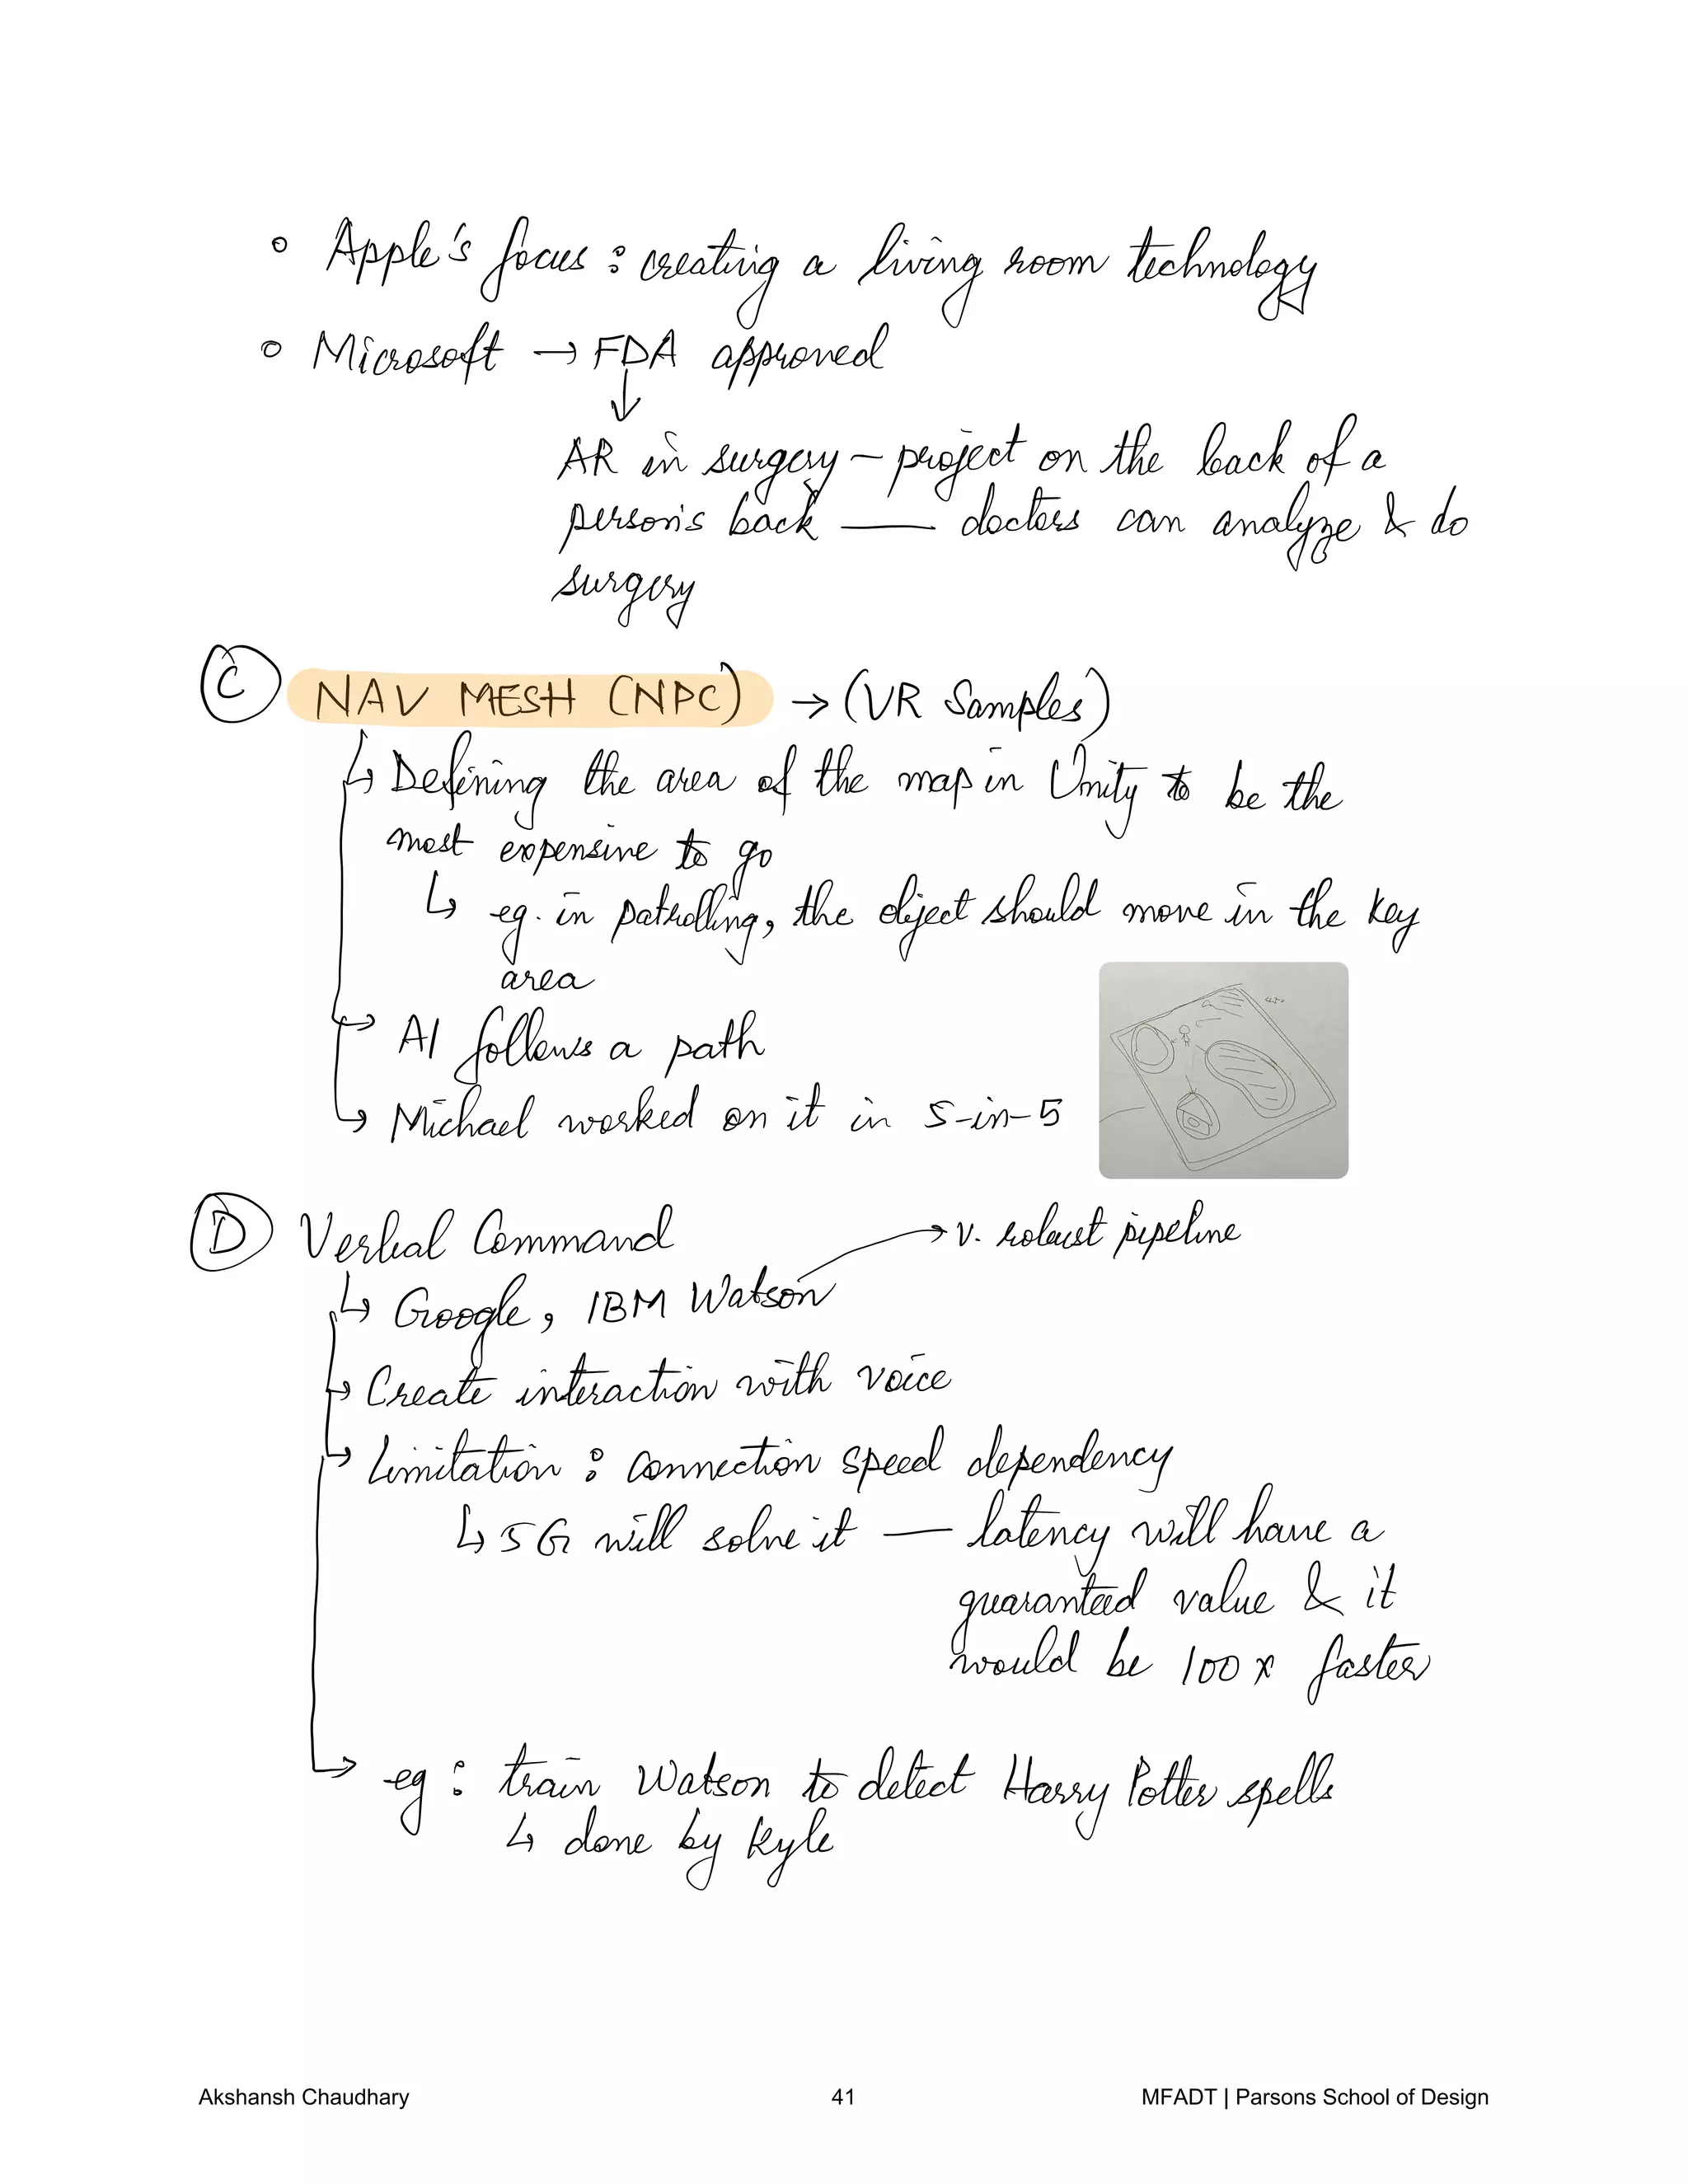 ◦ Apple's focus : creating a living room technology
◦ Microsoft → FDA approved
↓
AR in surgery – project on the back of a
person's back — doctors can analyze & do
surgery
Ⓒ NAV MESH (NPC) → (VR Samples)
↳ Defining the area of the map in Unity to be the
most expensive to go
↳ eg. in patrolling, the object should move in the key
area
↳ AI follows a path
↳ Michael worked on it in 5-in-5
Ⓓ Verbal Command
→ v. robust pipeline
↳ Google, IBM Watson
↳ Create interaction with voice
↳ Limitation : connection speed dependency
↳ 5G will solve it — latency will have a
guaranteed value & it
would be 100x faster
↳ eg : train Watson to detect Harry Potter spells
↳ done by Kyle
Akshansh Chaudhary 41 MFADT | Parsons School of Design